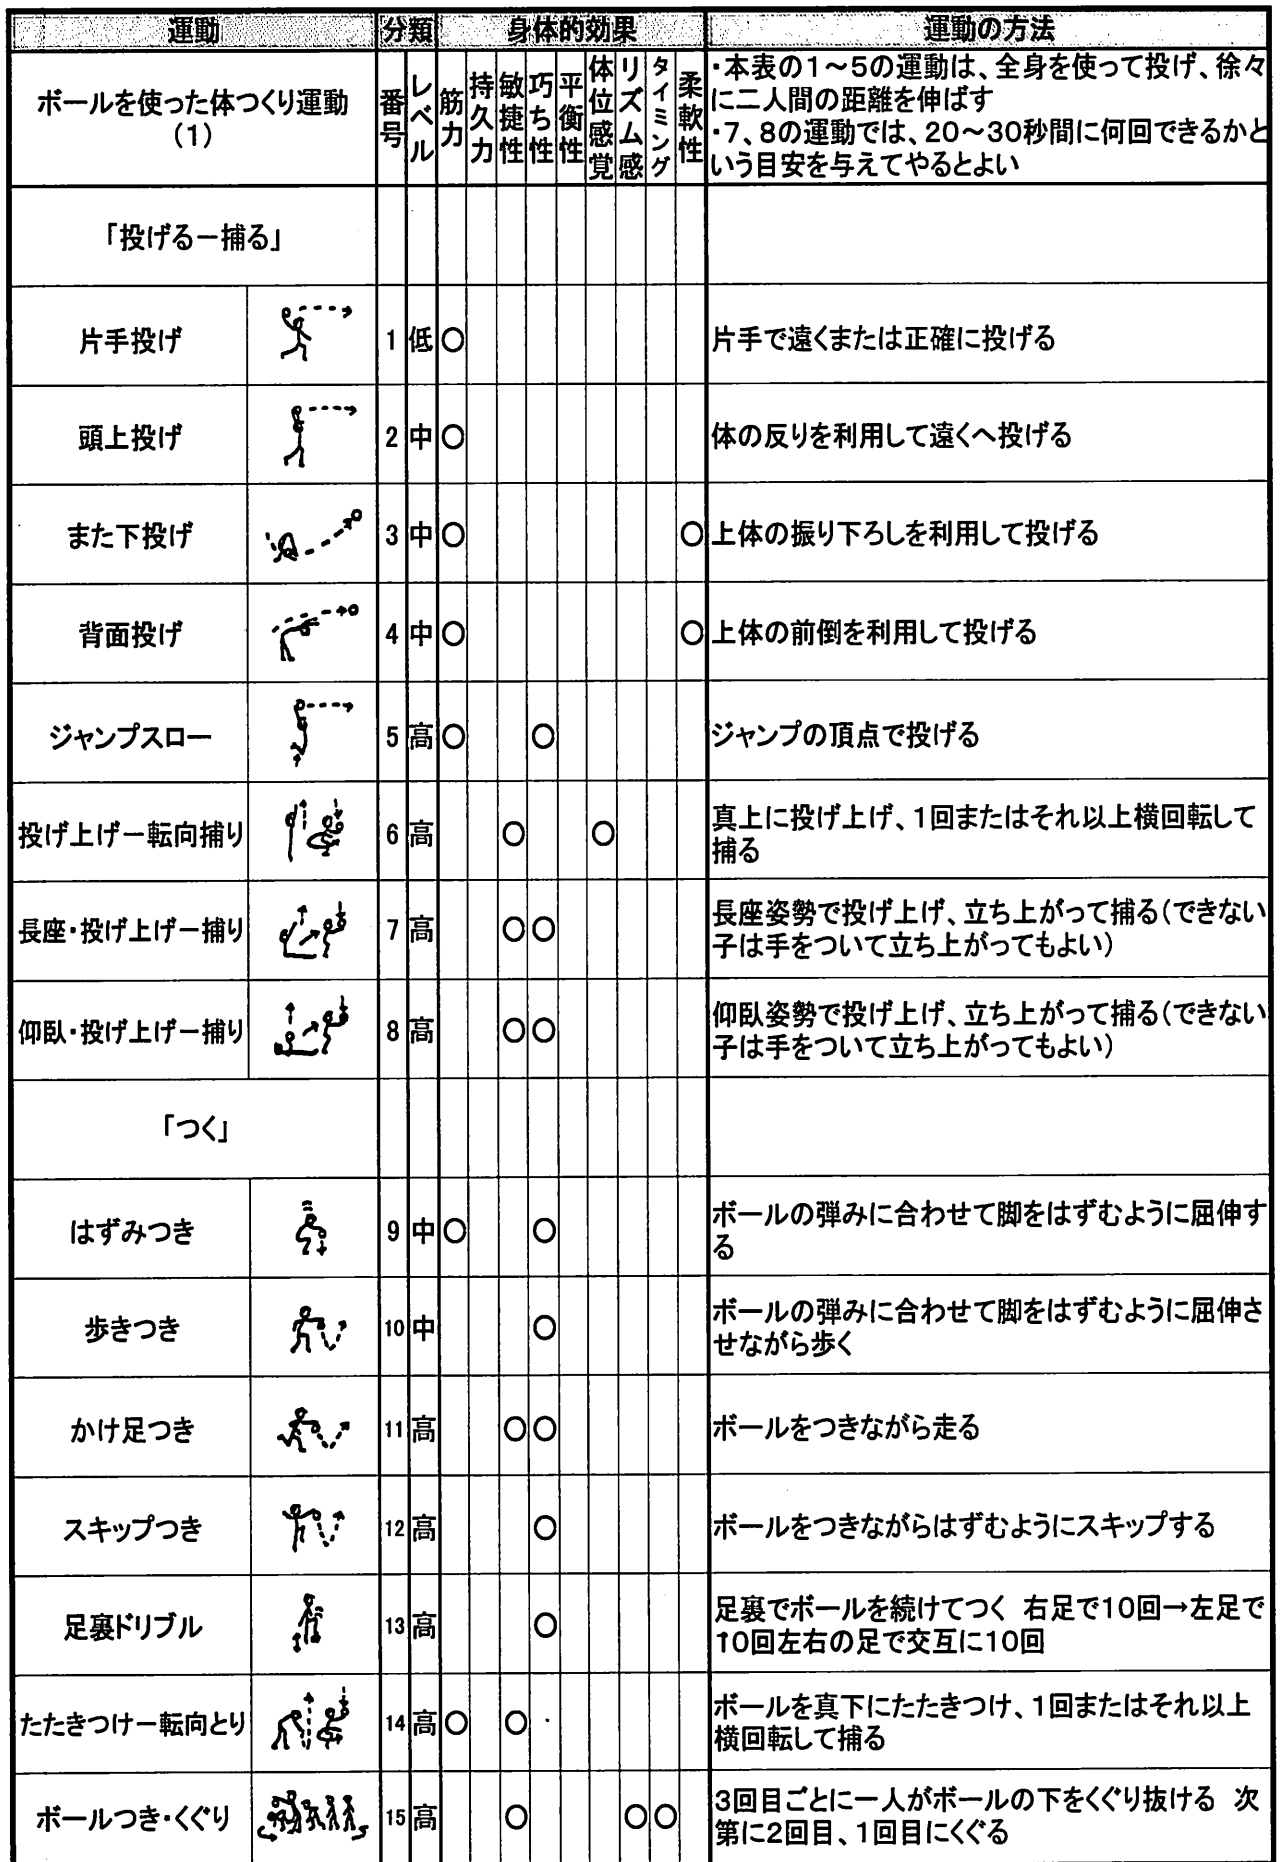 運動 分類 身体的効果 運動の方法
ボールを使った体つくり運動
(1)
番号 レベル 筋力 持久力 敏捷性 巧ち性 平衡性 体位感覚 リズム感 タイミング 柔軟性
・本表の1～5の運動は、全身を使って投げ、徐々
に二人間の距離を伸ばす
・7、8の運動では、20～30秒間に何回できるかと
いう目安を与えてやるとよい
「投げるー捕る」
片手投げ 1 低 ○ 片手で遠くまたは正確に投げる
頭上投げ 2 中 ○ 体の反りを利用して遠くへ投げる
また下投げ 3 中 ○ ○ 上体の振り下ろしを利用して投げる
背面投げ 4 中 ○ ○ 上体の前倒を利用して投げる
ジャンプスロー 5 高 ○ ○ ジャンプの頂点で投げる
投げ上げー転向捕り 6 高 ○ ○ 真上に投げ上げ、1回またはそれ以上横回転して
捕る
長座・投げ上げー捕り 7 高 ○ ○ 長座姿勢で投げ上げ、立ち上がって捕る(できない
子は手をついて立ち上がってもよい)
仰臥・投げ上げー捕り 8 高 ○ ○ 仰臥姿勢で投げ上げ、立ち上がって捕る(できない
子は手をついて立ち上がってもよい)
「つく」
はずみつき 9 中 ○ ○ ボールの弾みに合わせて脚をはずむように屈伸す
る
歩きつき 10 中 ○ ボールの弾みに合わせて脚をはずむように屈伸さ
せながら歩く
かけ足つき 11 高 ○ ○ ボールをつきながら走る
スキップつき 12 高 ○ ボールをつきながらはずむようにスキップする
足裏ドリブル 13 高 ○ 足裏でボールを続けてつく 右足で10回→左足で
10回左右の足で交互に10回
たたきつけー転向とり 14 高 ○ ○ ボールを真下にたたきつけ、1回またはそれ以上
横回転して捕る
ボールつき・くぐり 15 高 ○ ○ ○ 3回目ごとに一人がボールの下をくぐり抜ける 次
第に2回目、1回目にくぐる